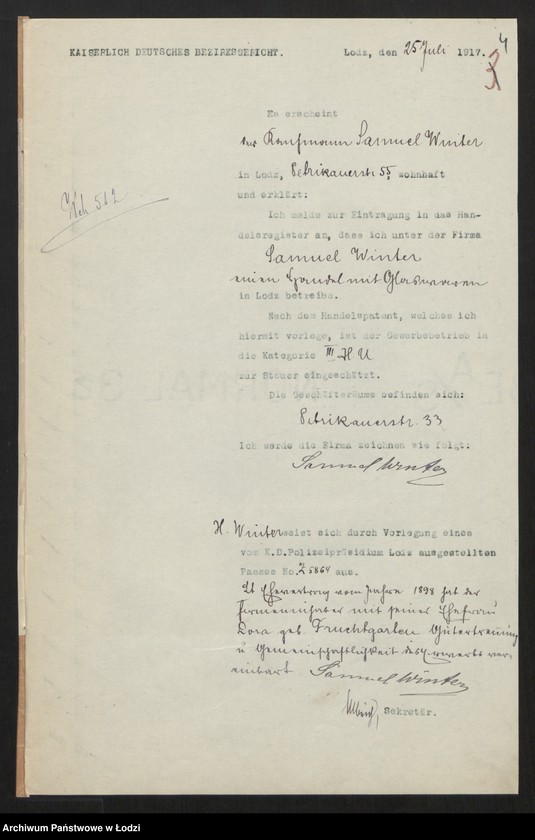 4
KAISERLICH DEUTSCHES BEZIRKSGERICHT. Lodz, den 25 Juli 1917.
3
Es erscheint
der Kaufmann Samuel Winter
in Lodz, Petrikauerstr. 55 wohnhaft
und erklärt:
Ich melde zur Eintragung in das Han-
delsregister an, dass ich unter der Firma
Samuel Winter
einen Handel mit Glaswaren
in Lodz betreibe.
Nach dem Handelspatent, welches ich
hiermit vorlege, ist der Gewerbebetrieb in
die Kategorie III H U
zur Steuer eingeschätzt.
Die Geschäfteräume befinden sich:
Petrikauerstr. 33
Ich werde die Firma zeichnen wie folgt:
Samuel Winter
H. Winter weist sich durch Vorlegung eines
vom K.D.Polizeipräsidium Lodz ausgestellten
Passes No. Z 5864 aus.
Lt Ehevertrag vom Jahre 1898 hat der
Firmeninhaber mit seiner Ehefrau
Dora geb. Fruchtgarten Gütertrennung
u Gemeinschaftlichkeit des Erwerbs ver-
einbart. Samuel Winter
Sekretär.
Archiwum Państwowe w Łodzi